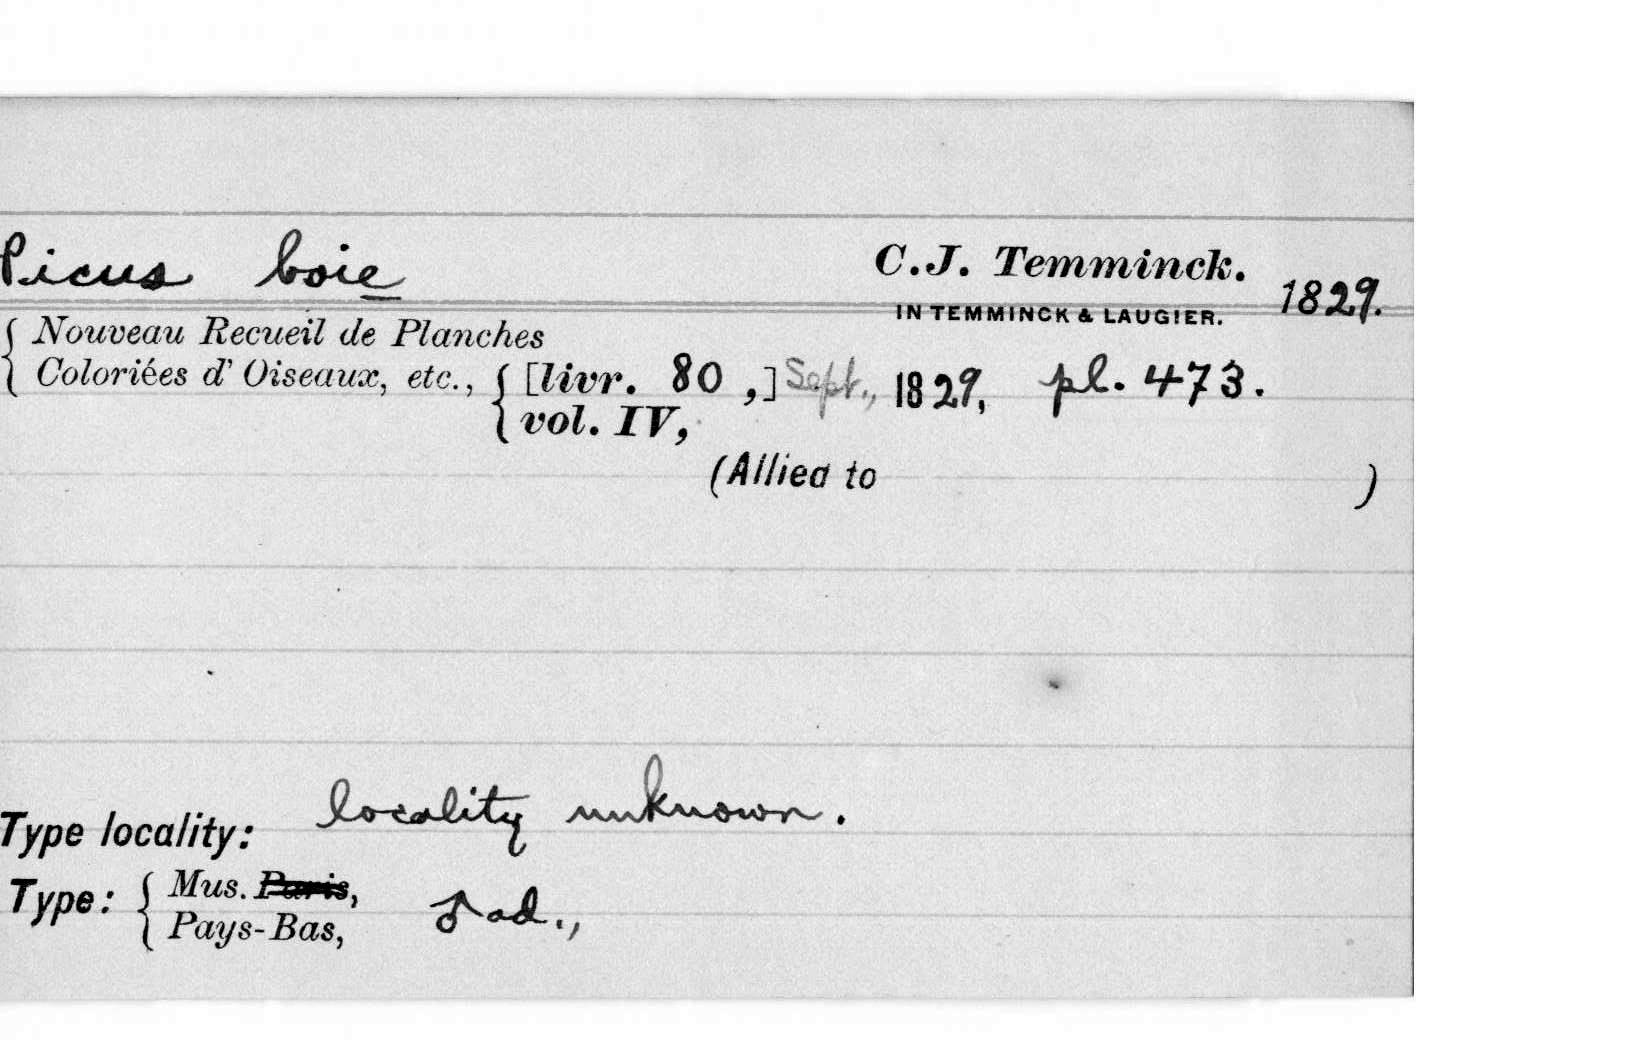 Picus boie C.J. Temminck. 1829.
IN TEMMINCK & LAUGIER.
Nouveau Recueil de Planches
Coloriées d' Oiseaux, etc., [livr. 80 ,] Sept., 1829, pl. 473.
vol. IV,
(Allied to )
Type locality: locality unknown.
Type: Mus. Paris,
Pays-Bas, ♂ ad.,